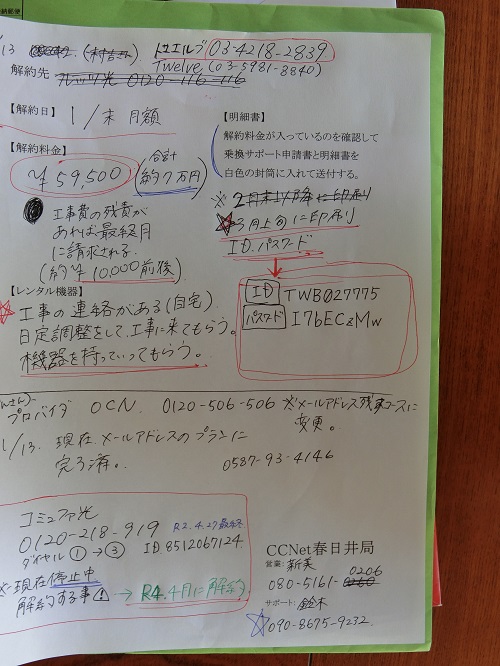 /13 (木村さん) トゥエルブ 03-4218-2839
解約先 フレッツ光 0120-116-116 Twelve (03-5981-8840)
【解約日】 1/末 月額
【解約料金】
¥59,500 (合計 約7万円)
工事費の残責が
あれば最終月
に請求される
(約¥10,000前後)
【明細書】
解約料金が入っているのを確認して
乗換サポート申請書と明細書を
白色の封筒に入れて送付する。
※ 2月末以降に印刷り
☆3月上旬に印刷り
ID.パスワード
ID TWB027775
パスワード I7bECzMw
【レンタル機器】
☆工事の連絡がある(自宅)
日定調整をして、工事に来てもらう。
機器を持っていってもらう。
プロバイダ OCN. 0120-506-506 ※メールアドレス残すコースに
変更。
1/13. 現在、メールアドレスのプランに
完了済。 0587-93-4146
コミュファ光
0120-218-919 R2.4.27最終
ダイヤル ①→③ ID.8512067124
※現在停止中
解約する事 → R4.4月に解約
CCNet春日井局
営業: 新美 0206
080-5161-0260
サポート: 鈴木
☆090-8675-9232.